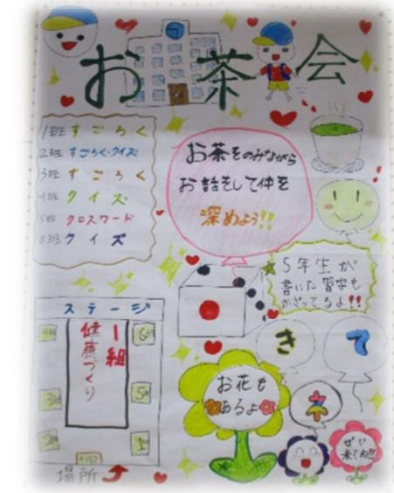 お茶会
1班 すごろく
2班 すごろく・クイズ
3班 すごろく
4班 クイズ
5班 クロスワード
6班 クイズ
お茶をのみながら
お話をして仲を
深めよう!!
5年生が
書いた習字も
かざってるよ!!
ステージ
1組
健康づくり
6班
5班
場所
お花も
あるよ
きてネ
ぜひ
来てね!!